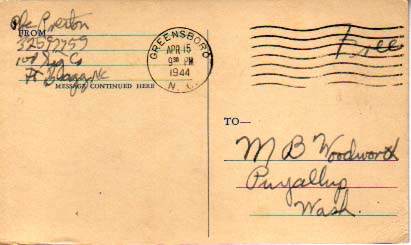 Pvt Preston
FROM
32592759
101 Sig Co
Ft Bragg NC
MESSAGE CONTINUED HERE
GREENSBORO
APR 15
9 30 PM
1944
N. C.
Free
TO—
M B Woodworth
Puyallup
Wash.